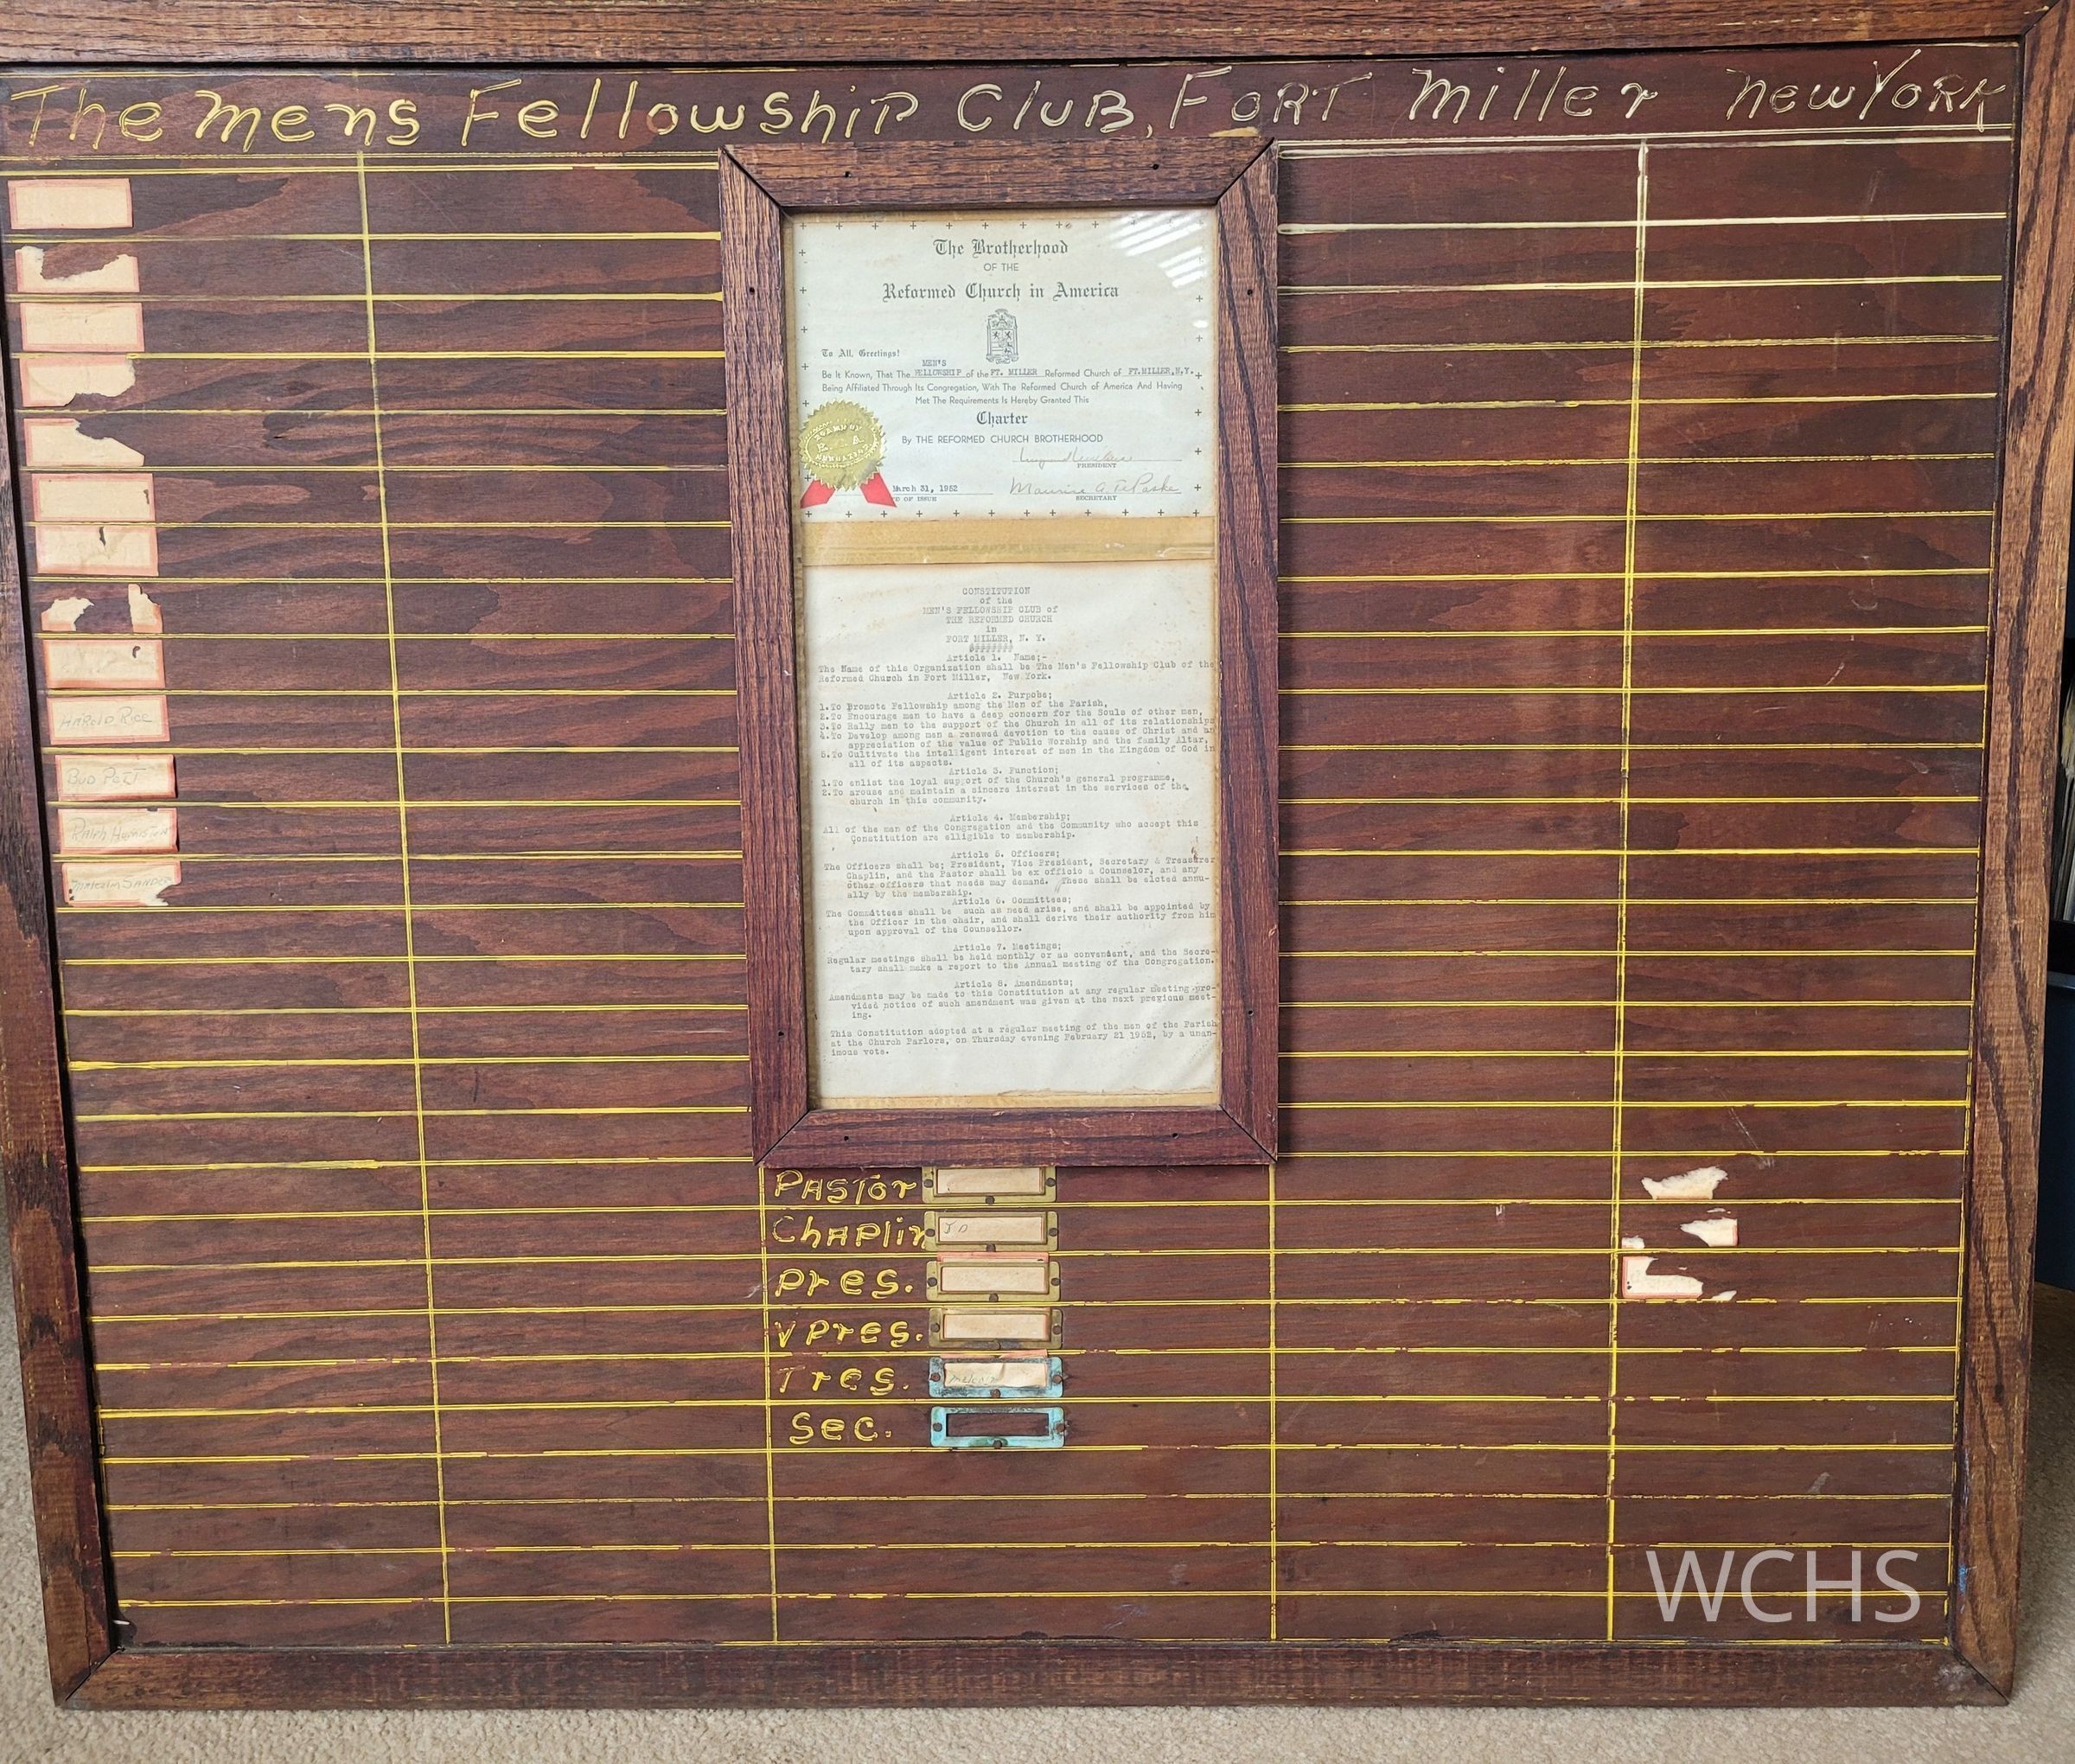 The mens Fellowship Club, Fort Miller new York
The Brotherhood
OF THE
Reformed Church in America
To All, Greetings!
MEN'S
Be It Known, That The FELLOWSHIP of the FT. MILLER Reformed Church of FT.MILLER,N.Y.
Being Affiliated Through Its Congregation, With The Reformed Church of America And Having
Met The Requirements Is Hereby Granted This
Charter
By THE REFORMED CHURCH BROTHERHOOD
PRESIDENT
March 31, 1952
Maurice A. TePaske
OF ISSUE
SECRETARY
CONSTITUTION
of the
MEN'S FELLOWSHIP CLUB of
THE REFORMED CHURCH
in
FORT MILLER, N. Y.
Article 1. Name;-
The Name of this Organization shall be The Men's Fellowship Club of the
Reformed Church in Fort Miller, New York.
Article 2. Purpose;
1.To Promote Fellowship among the Men of the Parish,
2.To Encourage men to have a deep concern for the Souls of other men,
3.To Rally men to the support of the Church in all of its relationships
4.To Develop among men a renewed devotion to the cause of Christ and an
appreciation of the value of Public Worship and the family Altar,
5.To Cultivate the intelligent interest of men in the Kingdom of God in
all of its aspects.
Article 3. Function;
1.To enlist the loyal support of the Church's general programme,
2.To arouse and maintain a sincere interest in the services of the
church in this community.
Article 4. Membership;
All of the men of the Congregation and the Community who accept this
Constitution are elligible to membership.
Article 5. Officers;
The Officers shall be; President, Vice President, Secretary & Treasurer
Chaplin, and the Pastor shall be ex officio a Counselor, and any
other officers that needs may demand. These shall be elcted annu-
ally by the membership.
Article 6. Committees;
The Committees shall be such as need arise, and shall be appointed by
the Officer in the chair, and shall derive their authority from him
upon approval of the Counsellor.
Article 7. Meetings;
Regular meetings shall be held monthly or as convenient, and the Secre-
tary shall make a report to the Annual meeting of the Congregation.
Article 8. Amendments;
Amendments may be made to this Constitution at any regular meeting pro-
vided notice of such amendment was given at the next previous meet-
ing.
This Constitution adopted at a regular meeting of the men of the Parish
at the Church Parlors, on Thursday evening February 21 1952, by a unan-
imous vote.
HAROLD RICE
BUD PETT
Ralph Humiston
MALCOLM SANDER
PASTOR
Chaplin
Pres.
V Pres.
Tres.
Sec.
WCHS